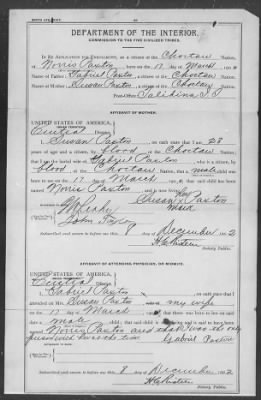 DEPARTMENT OF THE INTERIOR.
COMMISSION TO THE FIVE CIVILIZED TRIBES.
IN RE APPLICATION FOR ENROLLMENT, as a citizen of the Choctaw Nation,
of Norris Paxton, born on the 17 day of March, 190
Name of Father: Gabriel Paxton a citizen of the Choctaw Nation.
Name of Mother: Susan Paxton a citizen of the Choctaw Nation.
Post-Office: Talihina I.T.
AFFIDAVIT OF MOTHER.
UNITED STATES OF AMERICA,
INDIAN TERRITORY,
Central District.
I, Susan Paxton, on oath state that I am 28
years of age and a citizen, by blood, of the Choctaw Nation;
that I am the lawful wife of Gabriel Paxton, who is a citizen, by
blood of the Choctaw Nation; that a male child was
born to me on 17 day of March, that said child has been
named Norris Paxton, and is now living.
Susan Paxton
her
mark
8 December 2
Notary Public.
AFFIDAVIT OF ATTENDING PHYSICIAN, OR MIDWIFE.
UNITED STATES OF AMERICA,
INDIAN TERRITORY,
Central District.
I, Gabriel Paxton, on oath state that I
attended on Mrs. Susan Paxton, my wife
on the 17 day of March
male child; that said child is now living and is said to have been
named Norris Paxton and that I was the only
Gabriel Paxton
Subscribed and sworn to before me this 8 day of December 2
Notary Public.